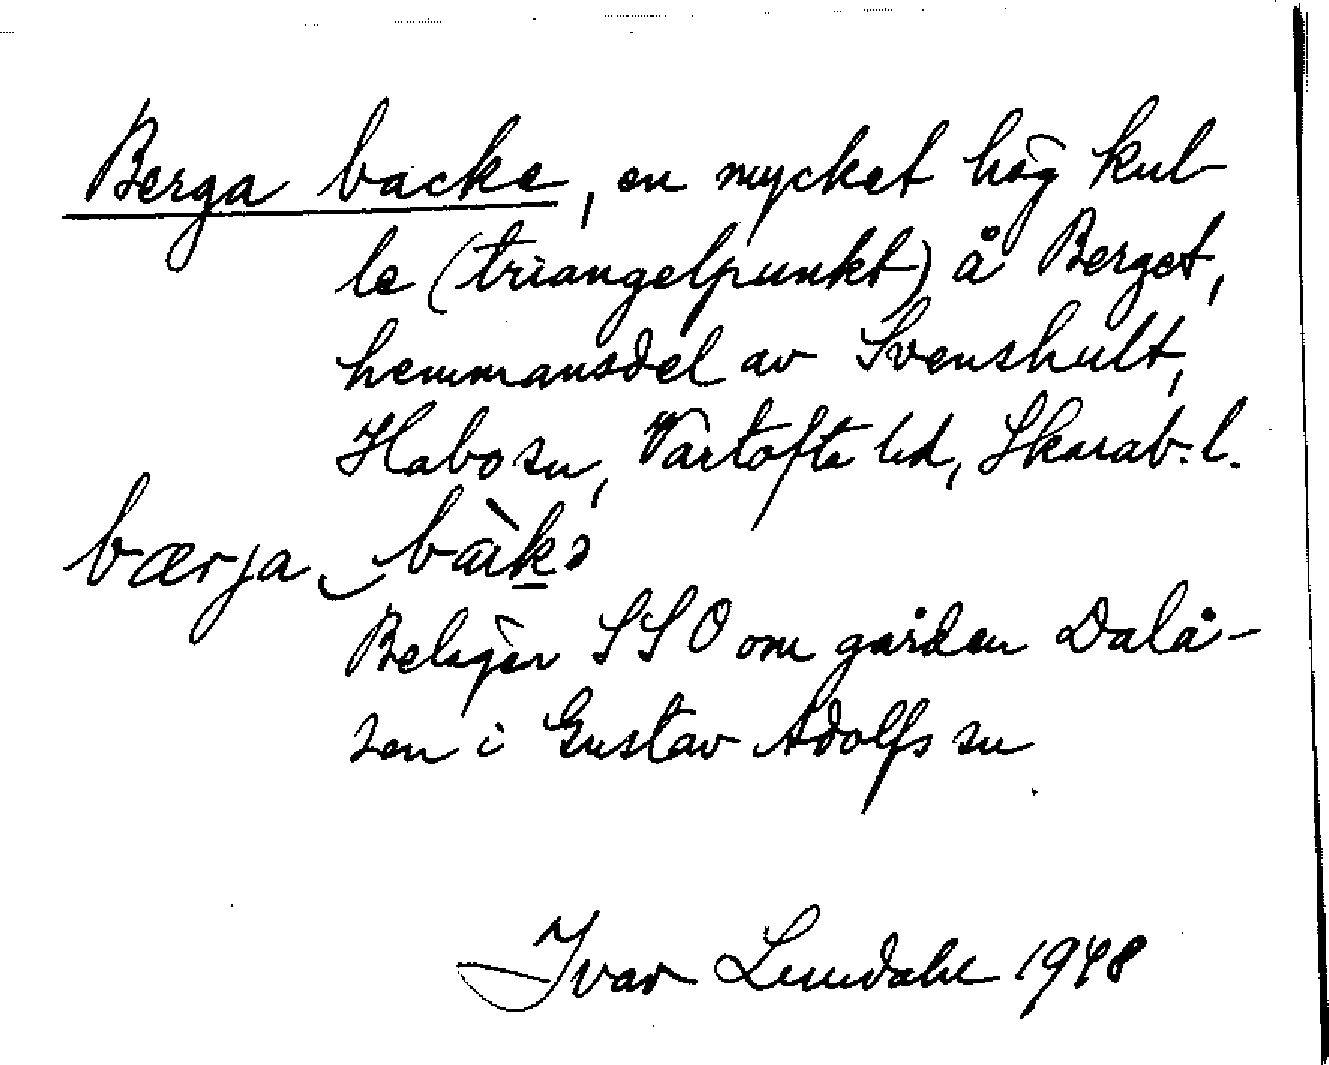 Berga backe, en mycket hög kul-
le (triangelpunkt) å Berget,
hemmansdel av Svenshult,
Habo sn, Vartofta hd, Skarab. l.
bærja ‿ bàkə
Belägen SSO om gården Dalå-
sen i Gustav Adolfs sn
Ivar Lundahl 1948